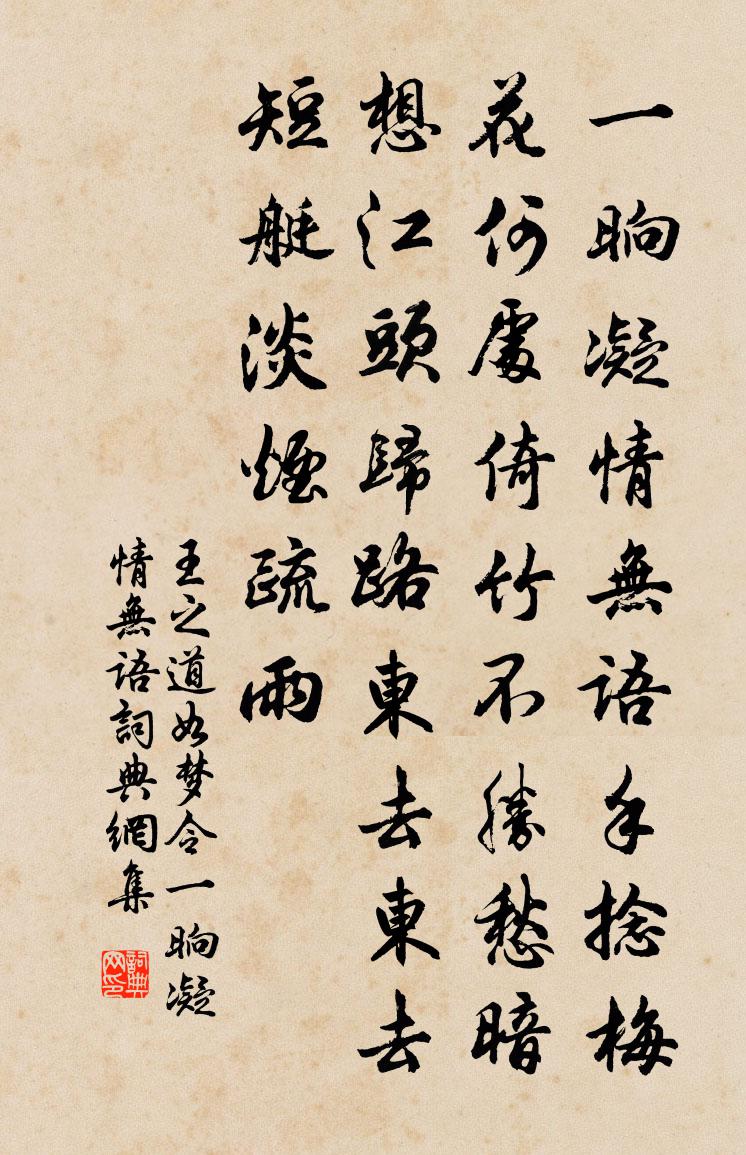 一晌凝情無語手捻梅
花何處倚竹不勝愁暗
想江頭歸路東去東去
短艇淡煙疏雨
王之道如梦令一晌凝
情無語詞典網集
詞典
网印